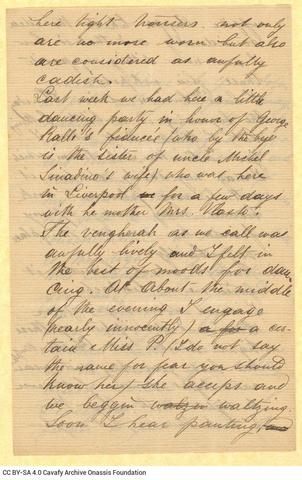 here tight trousers not only
are no more worn but also
are considered as awfully
cadish.
Last week we had here a little
dancing party in honor of George
Ralli's fiancée (who by the bye
is the sister of uncle Michel
Sinadino's wife) who was here
in Liverpool for a few days
with he mother Mrs. Vlasto.
The vengherah as we call was
awfully lively and I felt in
the best of moods for dan-
cing. At about the middle
of the evening I engage
(nearly innocently) a cer-
tain Miss P. (I do not say
the name for fear you should
know her) she accepts and
we beggin waltzing
Soon I hear panting,
CC BY-SA 4.0 Cavafy Archive Onassis Foundation